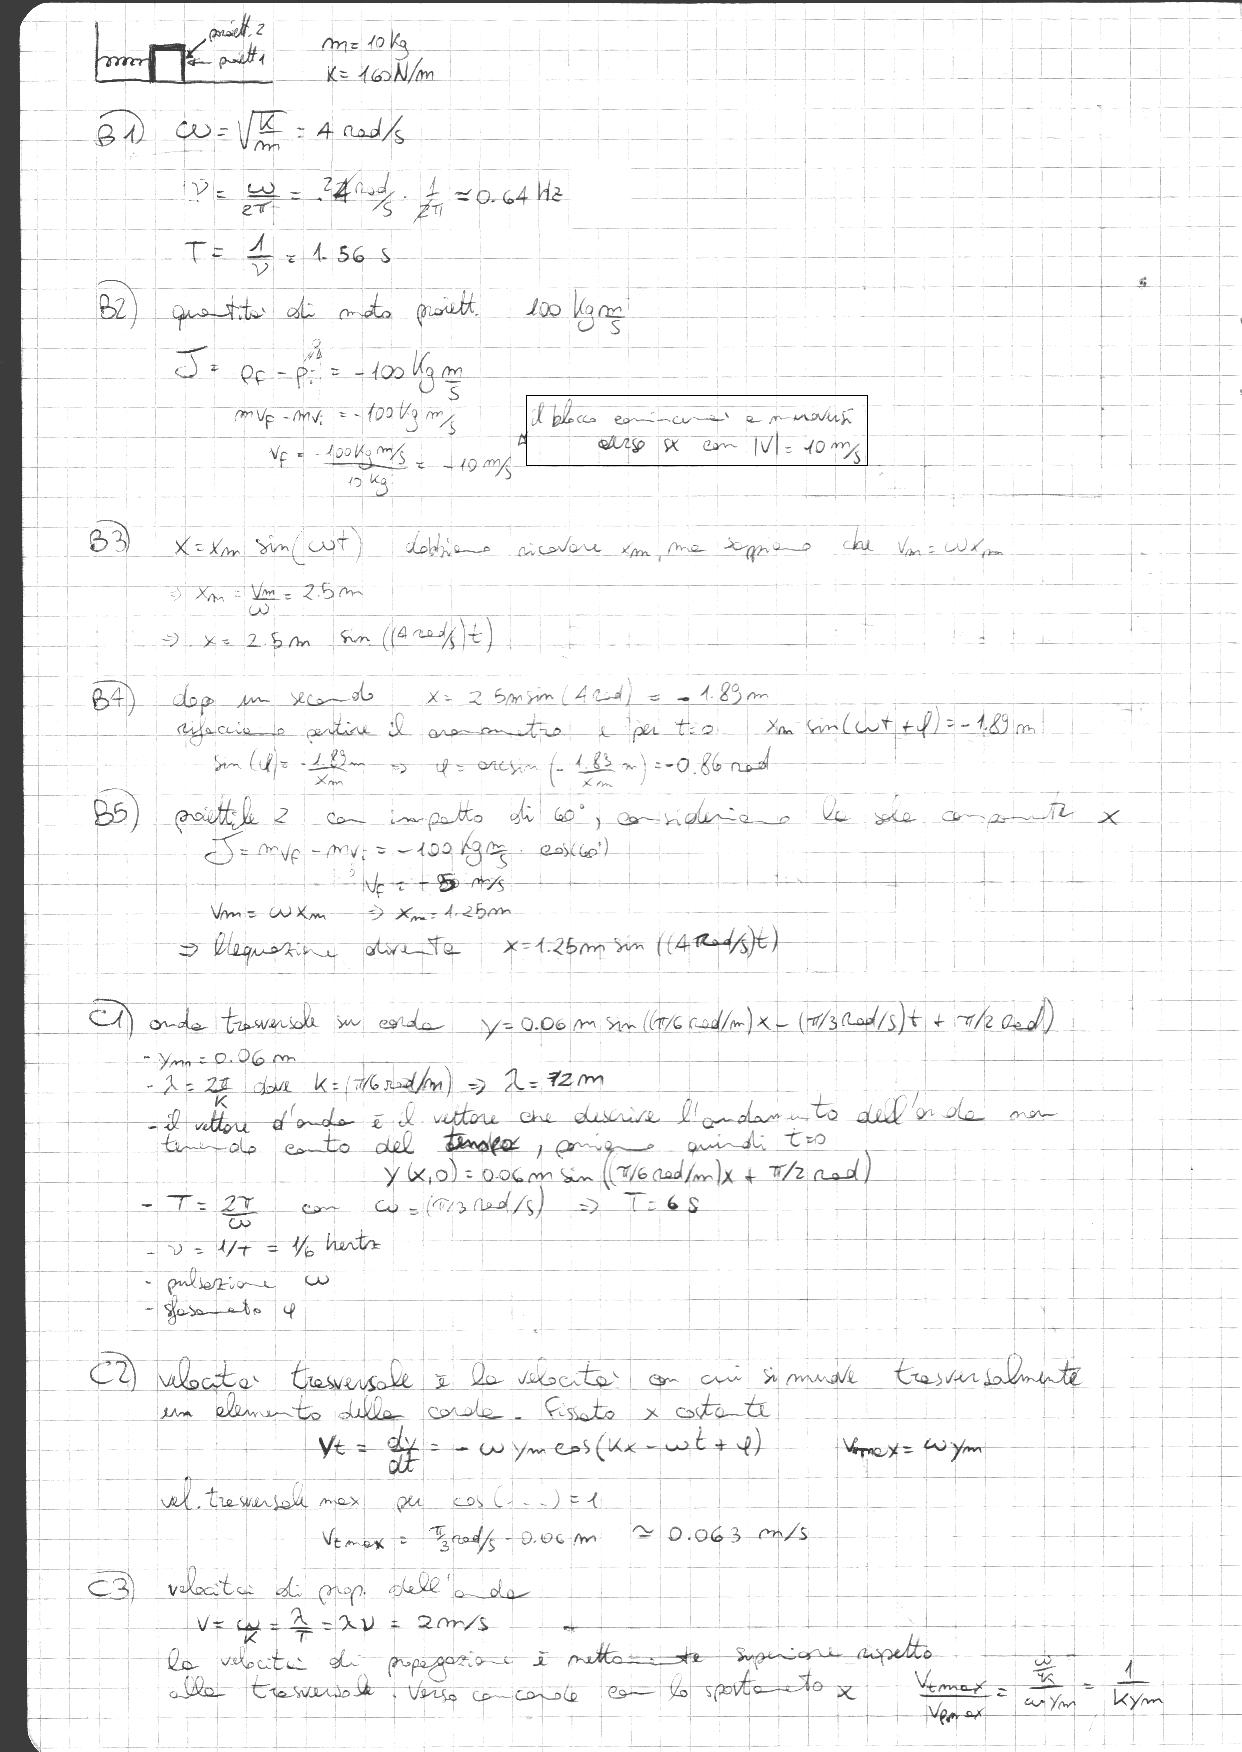 proiett. 2
proiett 1
m = 10 Kg
K = 160 N/m
B1) ω = √(K/m) = 4 rad/s
ν = ω/2π = 4 rad/s · 1/2π ≃ 0.64 Hz
T = 1/ν = 1.56 s
B2) quantità di moto proiett. 100 Kg m/s
J = pf - pi = -100 Kg m/s
mvf - mvi = -100 Kg m/s
vf = -100 Kg m/s / 10 Kg = -10 m/s
il blocco comincerà a muoversi
verso sx con |V| = 10 m/s
B3) x = xm sin(ωt) dobbiamo ricavare xm, ma sappiamo che vm = ωxm
⇒ xm = vm/ω = 2.5 m
⇒ x = 2.5 m sin((4 rad/s)t)
B4) dopo un secondo x = 2.5 m sin(4 rad) = -1.89 m
rifacciamo partire il cronometro e per t=0 xm sin(ωt + φ) = -1.89 m
sin(φ) = -1.89/xm m ⇒ φ = arcsin(-1.89/xm m) = -0.86 rad
B5) proiettile 2 con impatto di 60°, consideriamo la sola componente x
J = mvf - mvi = -100 Kg m/s · cos(60°)
vf = +5 m/s
vm = ωxm ⇒ xm = 1.25 m
⇒ l'equazione diventa x = 1.25 m sin((4 rad/s)t)
C1) onda trasversale su corda y = 0.06 m sin((π/6 rad/m)x - (π/3 rad/s)t + π/2 rad)
- ym = 0.06 m
- λ = 2π/K dove K = (π/6 rad/m) ⇒ λ = 12 m
- il vettore d'onda è il vettore che descrive l'andamento dell'onda non
tenendo conto del tempo, poniamo quindi t=0
y(x,0) = 0.06 m sin((π/6 rad/m)x + π/2 rad)
- T = 2π/ω con ω = (π/3 rad/s) ⇒ T = 6 s
- ν = 1/T = 1/6 hertz
- pulsazione ω
- sfasamento φ
C2) velocità trasversale è la velocità con cui si muove trasversalmente
un elemento della corda. Fissato x costante
Vt = dy/dt = -ω ym cos(Kx - ωt + φ) Vtmax = ω ym
vel. trasversale max per cos(...) = 1
Vtmax = π/3 rad/s · 0.06 m ≃ 0.063 m/s
C3) velocità di prop. dell'onda
V = ω/K = λ/T = λν = 2 m/s
la velocità di propagazione è nettamente superiore rispetto
alla trasversale. Verso concorde con lo spostamento x Vtmax/Vpmax = (ω/K)/(ω ym) = 1/(K ym)